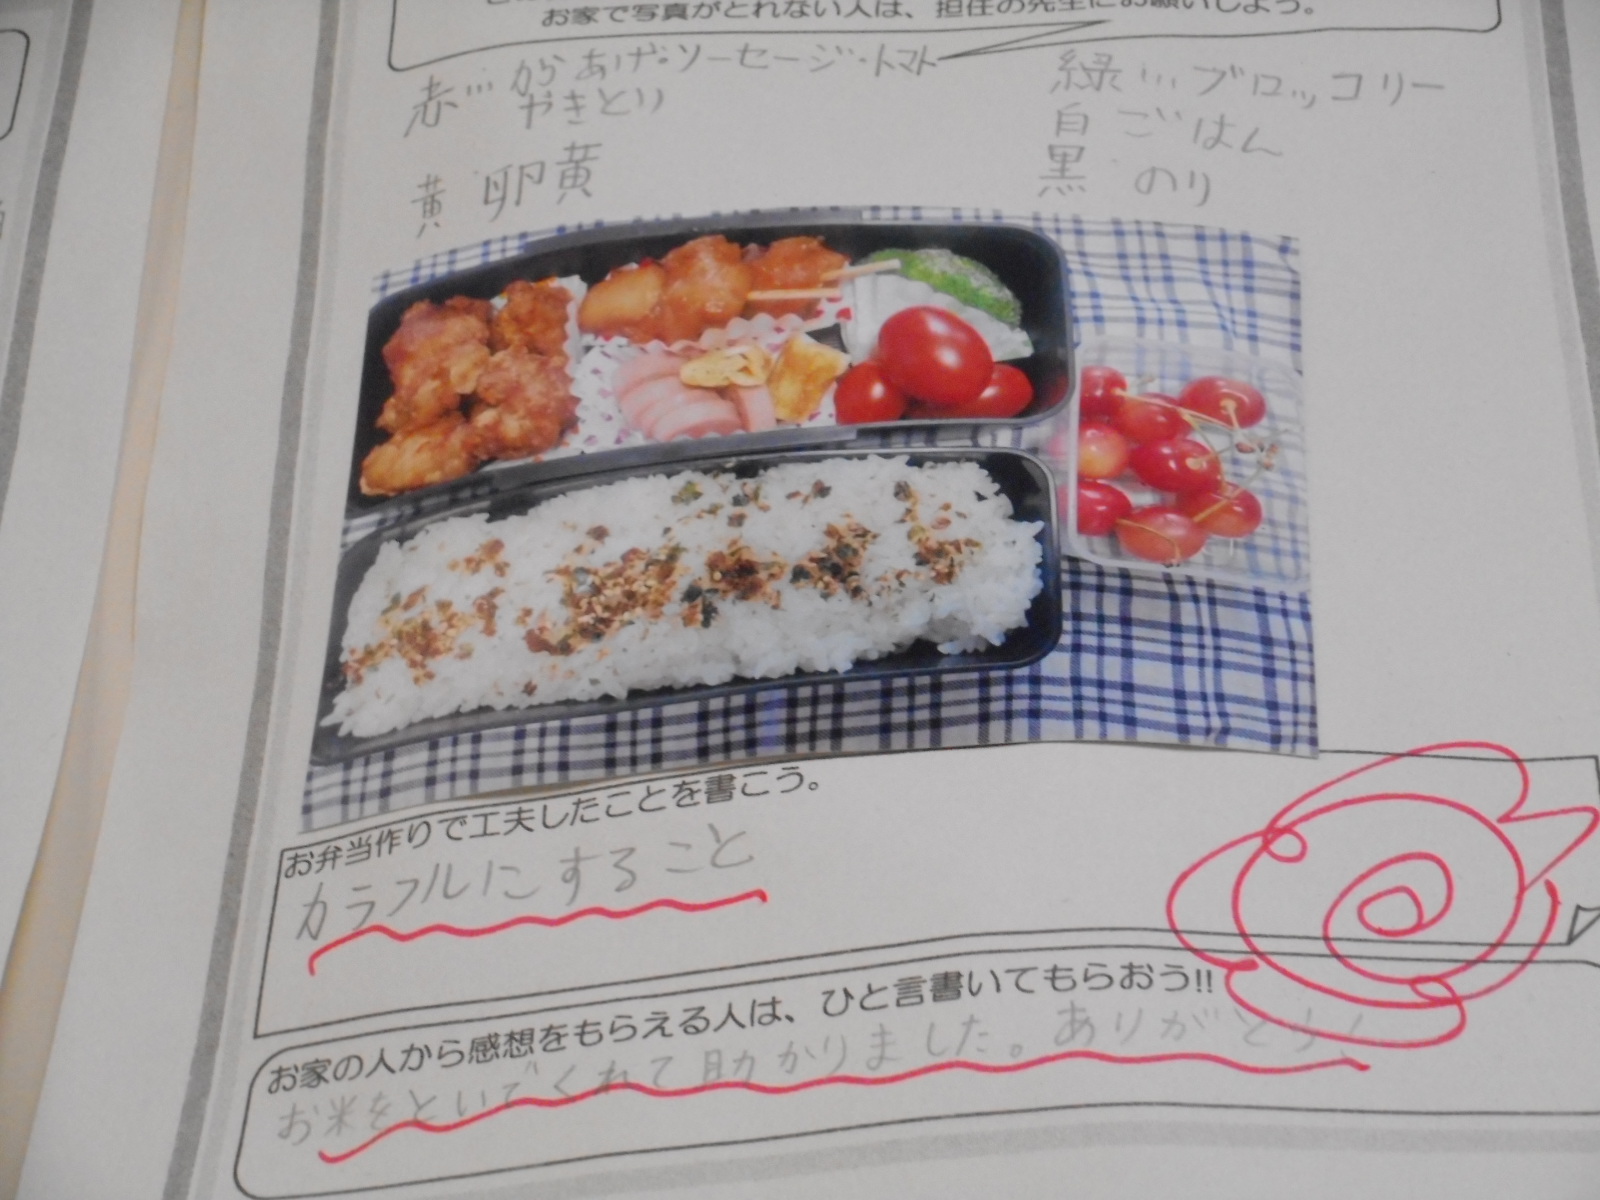 お家で写真がとれない人は、担任の先生にお願いしよう。
赤…からあげ・ソーセージ・トマト
やきとり
黄 卵黄
緑…ブロッコリー
白 ごはん
黒 のり
お弁当作りで工夫したことを書こう。
カラフルにすること
お家の人から感想をもらえる人は、ひと言書いてもらおう!!
お米をといでくれて助かりました。ありがとう!